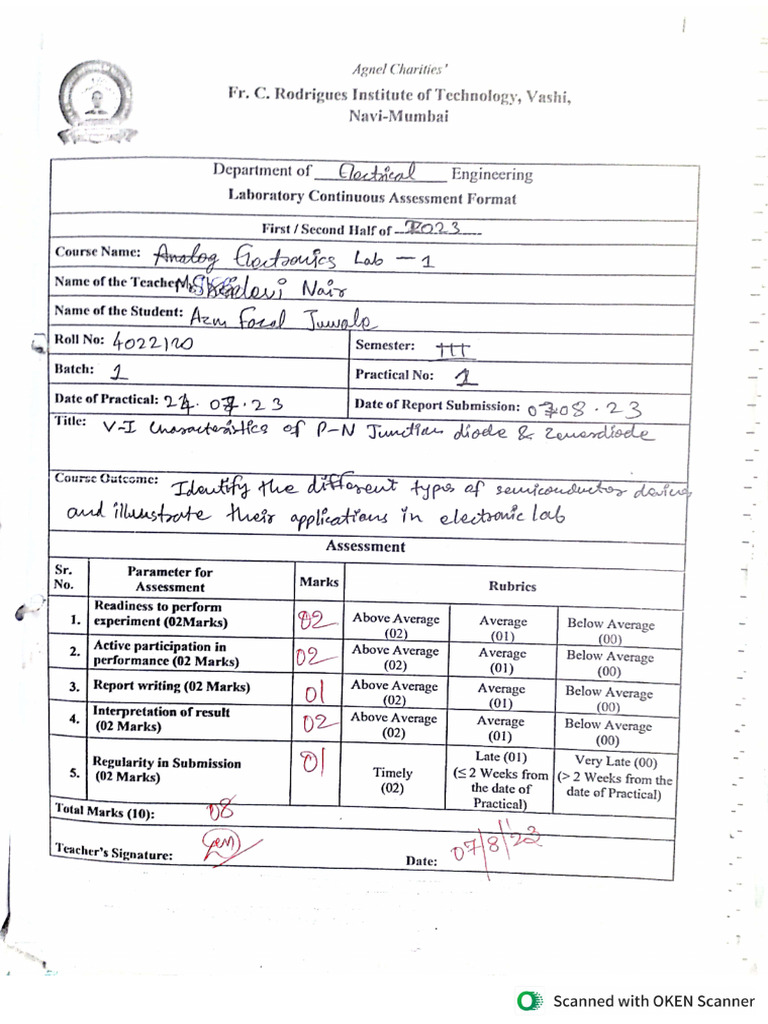 Agnel Charities'
Fr. C. Rodrigues Institute of Technology, Vashi,
Navi-Mumbai
Department of Electrical Engineering
Laboratory Continuous Assessment Format
First / Second Half of 2023
Course Name: Analog Electronics Lab - 1
Name of the Teacher: Nair
Name of the Student: Azm Juwale
Roll No: 4022120 Semester: III
Batch: 1 Practical No: 1
Date of Practical: 24.07.23 Date of Report Submission: 07.08.23
Title: V-I Characteristics of P-N Junction diode & Zenerdiode
Course Outcome: Identify the different types of semiconductor devices
and illustrate their applications in electronic lab
Assessment
Sr. No. Parameter for Assessment Marks Rubrics
1. Readiness to perform experiment (02Marks) 02 Above Average (02) Average (01) Below Average (00)
2. Active participation in performance (02 Marks) 02 Above Average (02) Average (01) Below Average (00)
3. Report writing (02 Marks) 01 Above Average (02) Average (01) Below Average (00)
4. Interpretation of result (02 Marks) 02 Above Average (02) Average (01) Below Average (00)
5. Regularity in Submission (02 Marks) 01 Timely (02) Late (01) (≤ 2 Weeks from the date of Practical) Very Late (00) (> 2 Weeks from the date of Practical)
Total Marks (10): 08
Teacher's Signature: Date: 07/8/23
Scanned with OKEN Scanner